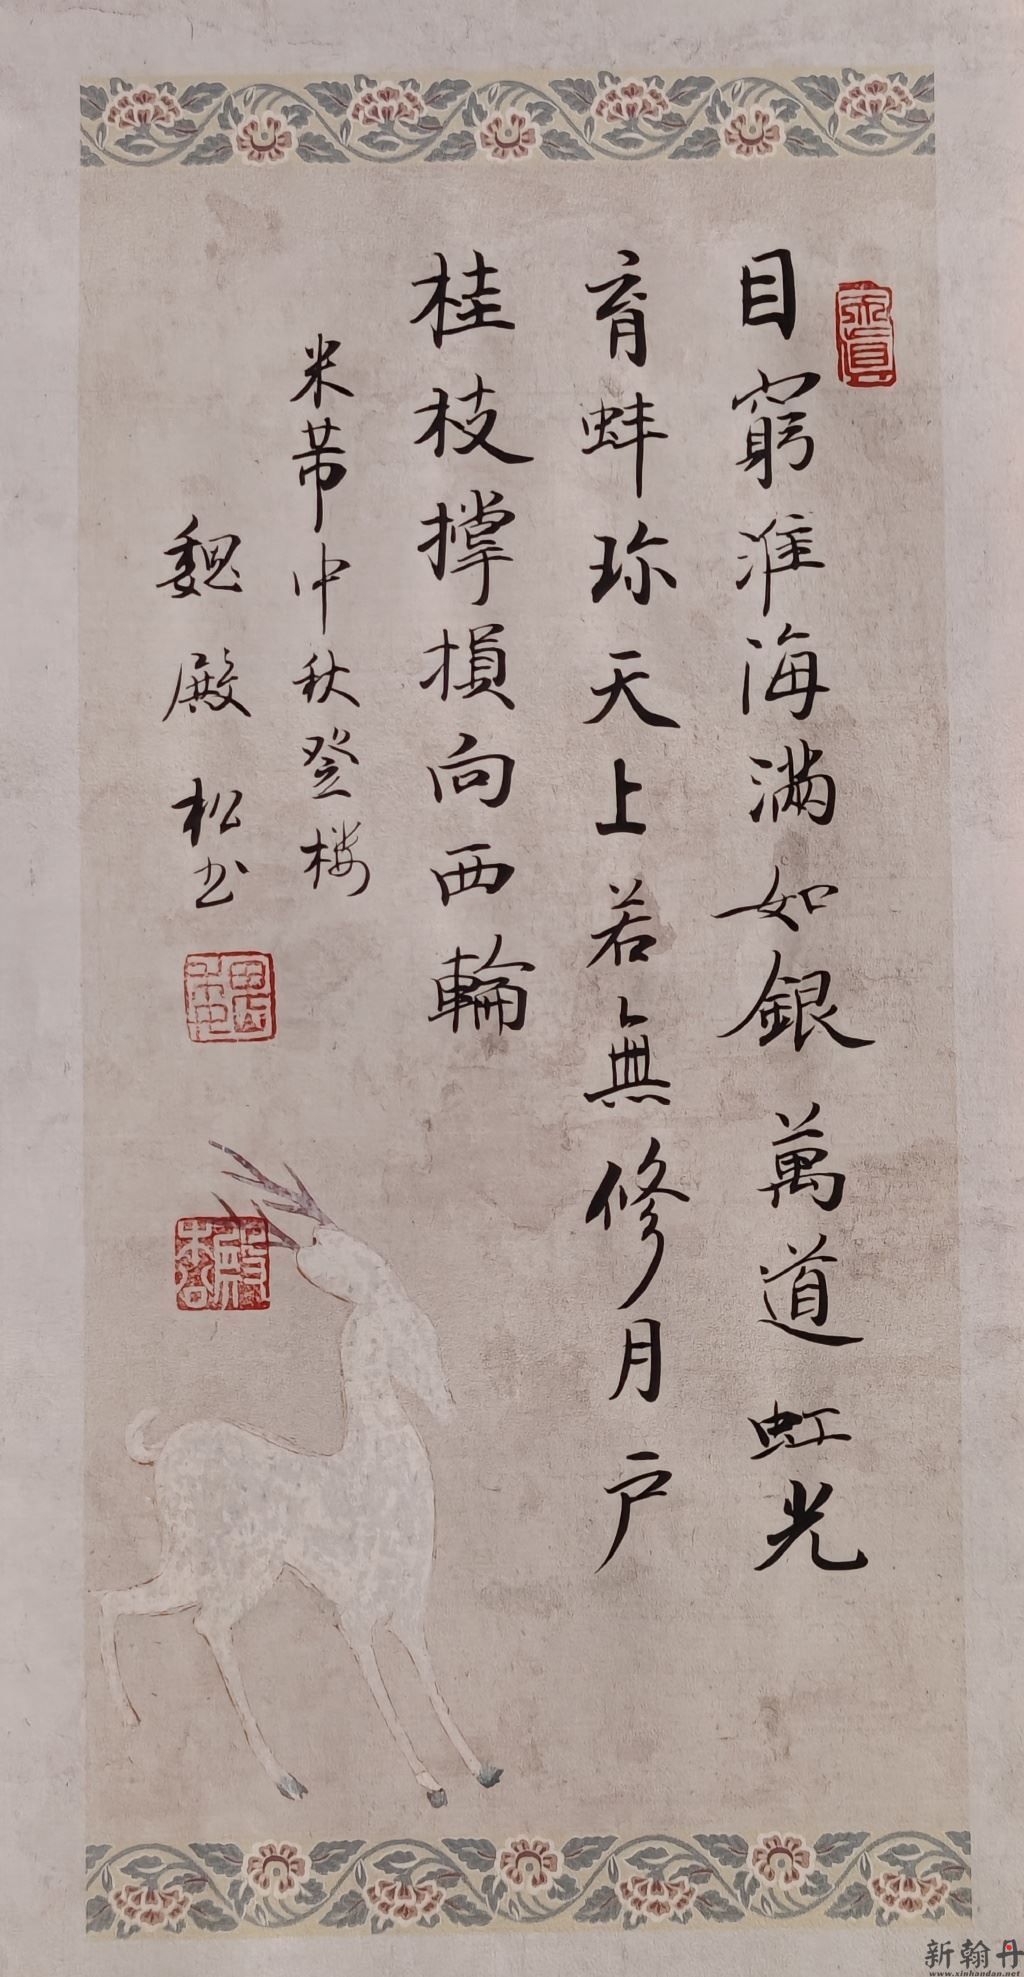 目窮淮海满如銀萬道虹光
育蚌珎天上若無修月户
桂枝撑損向西輪
米芾中秋登楼
魏殿松书
新翰丹
www.xinhandan.net